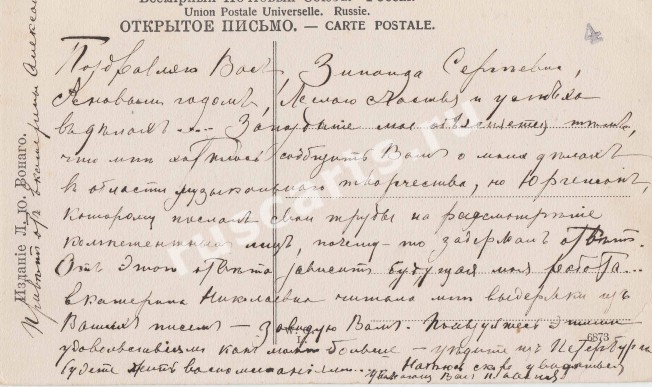 Всемірный Почтовый Союзъ. Россія.
Union Postale Universelle. Russie.
ОТКРЫТОЕ ПИСЬМО. — CARTE POSTALE.
Поздравляю Васъ, Зинаида Сергѣевна,
съ новымъ годомъ, желаю счастья и успѣха
въ дѣлахъ.... Запозданіе мое объясняется тѣмъ,
что мнѣ хотѣлось сообщить Вамъ о моихъ дѣлахъ
въ области музыкальнаго творчества, но Юргенсонъ,
которому послалъ свои труды на разсмотрѣніе
компетентныхъ лицъ, почему-то задержалъ отвѣтъ.
Отъ этого отвѣта зависитъ будущая моя работа...
Екатерина Николаевна читала мнѣ выдержки изъ
Вашихъ писемъ — завидую Вамъ. Пользуйтесь этими
удовольствіями какъ можно больше — уѣдите изъ Петербурга
будете жить воспоминаніями... скоро увидимся
Уважающій Васъ
Изданіе Л. Ю. Вонаго.
Привѣтъ отъ Екатерины
W. &
L.
6873
ruscarts.ru